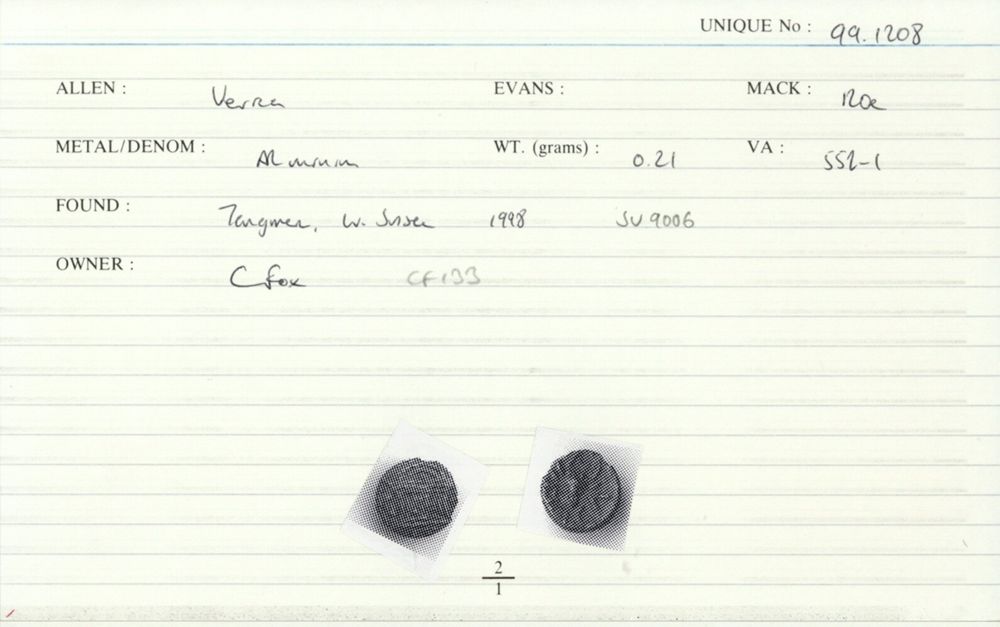 UNIQUE No : 99.1208
ALLEN : Verica EVANS : MACK : 120c
METAL/DENOM : AR minim WT. (grams) : 0.21 VA : 552-1
FOUND : Tangmere, W. Sussex 1998 SU 9006
OWNER : C Fox CF133
2
1